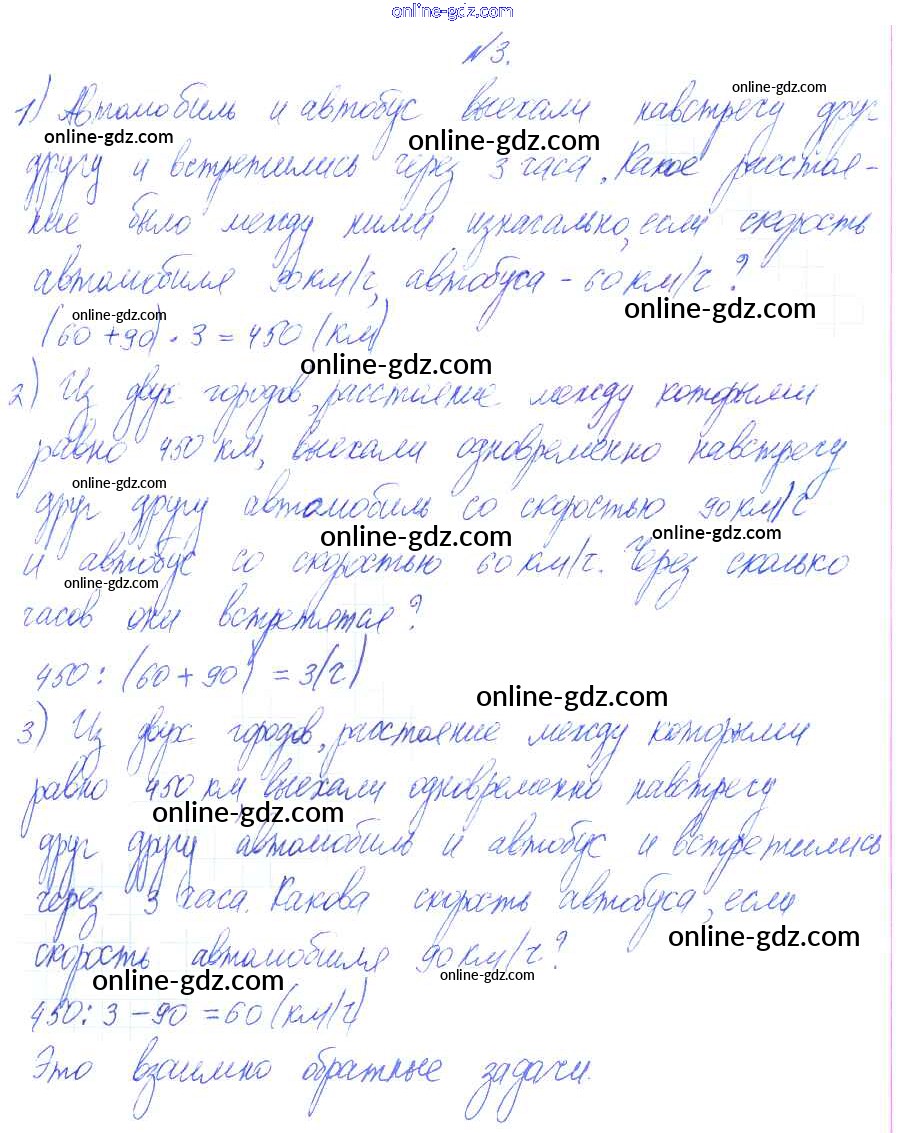 online-gdz.com
№3.
1) Автомобиль и автобус выехали навстречу друг
online-gdz.com
online-gdz.com
online-gdz.com
другу и встретились через 3 часа. Какое расстоя-
online-gdz.com
online-gdz.com
ние было между ними изначально, если скорость
online-gdz.com
автомобиля 90 км/ч, автобуса - 60 км/ч?
online-gdz.com
online-gdz.com
(60 + 90) · 3 = 450 (км)
online-gdz.com
2) Из двух городов, расстояние между которыми
равно 450 км, выехали одновременно навстречу
online-gdz.com
друг другу автомобиль со скоростью 90 км/ч
online-gdz.com
online-gdz.com
и автобус со скоростью 60 км/ч. Через сколько
online-gdz.com
часов они встретятся?
450 : (60 + 90) = 3 (ч)
online-gdz.com
3) Из двух городов, расстояние между которыми
равно 450 км выехали одновременно навстречу
online-gdz.com
друг другу автомобиль и автобус и встретились
через 3 часа. Какова скорость автобуса, если
online-gdz.com
скорость автомобиля 90 км/ч?
online-gdz.com
online-gdz.com
450 : 3 - 90 = 60 (км/ч)
Это взаимно обратные задачи.